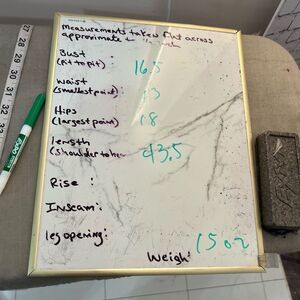 measurements taken flat across
approximate to ½ inch
Bust :
(Pit to pit) 16.5
Waist
(smallest point) :
Hips
(largest point) 18
length
(shoulder to hem 43.5
Rise :
Inseam:
leg opening: 15 oz
Weigh:
27
28
29
30
31
32
33
EXPO